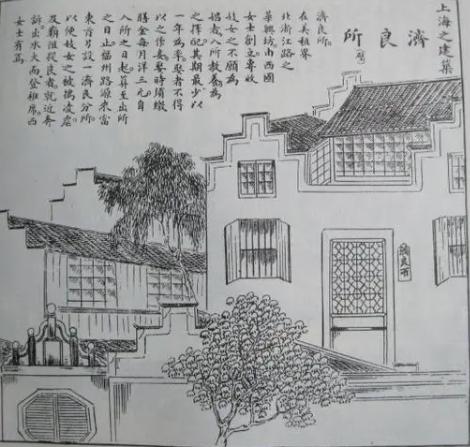 上海之建築
濟良所
濟良所。
在美租界
北浙江路之
華興坊南西國
女士創立專收
妓女之不願為
娼者入所教養為
之擇配其期最少以
一年為率娶者不得
以之作妾娶時須繳
膳金每月洋三元自
入所之日起算至出所
之日止福州路源來當
東首另設一濟良分所。
以便妓女之被凌虐
及阻從良者就近奔
訴出水火而登衽席。西
女士有焉
濟良所